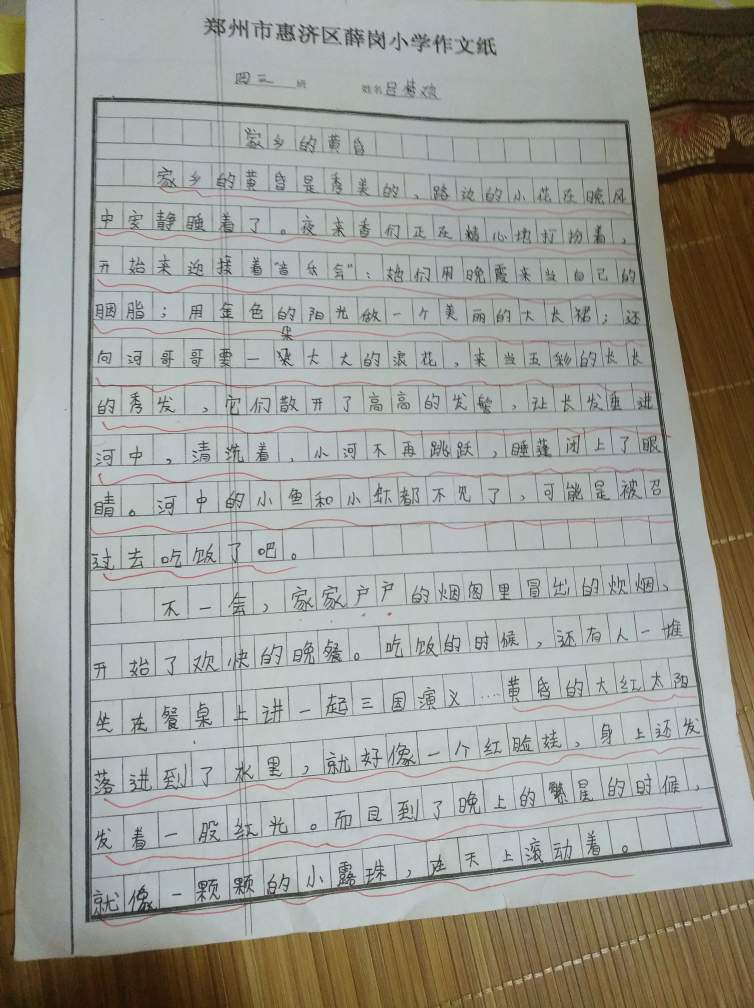 郑州市惠济区薛岗小学作文纸
四三班 姓名吕梦
家乡的黄昏
家乡的黄昏是秀美的、路边的小花在晚风
中安静睡着了。夜来香们正在精心地打扮着，
开始来迎接着“音乐会”：她们用晚霞来当自己的
胭脂；用金色的阳光做一个美丽的大长裙；还
朵
向河哥哥要一大大的浪花，来当五彩的长长
的秀发，它们散开了高高的发髻，让长发垂进
河中，清洗着，小河不再跳跃，睡莲闭上了眼
睛。河中的小鱼和小虾都不见了，可能是被召
过去吃饭了吧。
不一会，家家户户的烟囱里冒出的炊烟、
开始了欢快的晚餐。吃饭的时候，还有人一堆
坐在餐桌上讲一起三国演义…黄昏的大红太阳
落进到了水里，就好像一个红脸娃，身上还发
发着一股红光。而且到了晚上的繁星的时候，
就像一颗颗的小露珠，在天上滚动着。